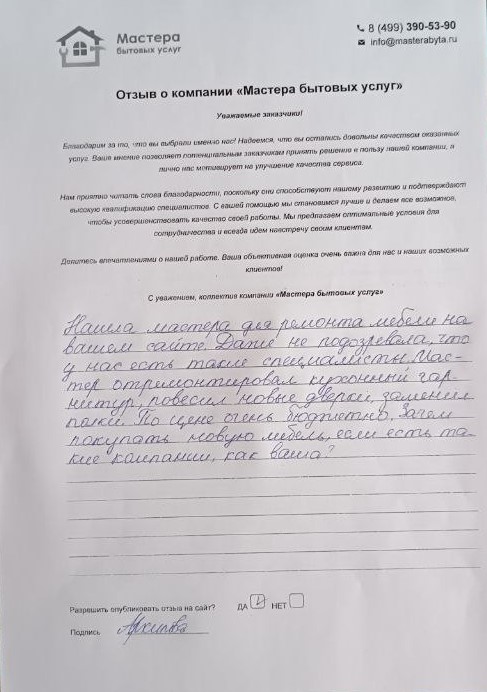 Мастера
бытовых услуг
8 (499) 390-53-90
info@masterabyta.ru
Отзыв о компании «Мастера бытовых услуг»
Уважаемые заказчики!
Благодарим за то, что вы выбрали именно нас! Надеемся, что вы остались довольны качеством оказанных
услуг. Ваше мнение позволяет потенциальным заказчикам принять решение в пользу нашей компании, а
лично нас мотивирует на улучшение качества сервиса.
Нам приятно читать слова благодарности, поскольку они способствуют нашему развитию и подтверждают
высокую квалификацию специалистов. С вашей помощью мы становимся лучше и делаем все возможное,
чтобы усовершенствовать качество своей работы. Мы предлагаем оптимальные условия для
сотрудничества и всегда идем навстречу своим клиентам.
Делитесь впечатлениями о нашей работе. Ваша объективная оценка очень важна для нас и наших возможных
клиентов!
С уважением, коллектив компании «Мастера бытовых услуг»
Нашла мастера для ремонта мебели на
вашем сайте. Даже не подозревала, что
у нас есть такие специалисты. Мас-
тер отремонтировал кухонный гар-
нитур, повесил новые дверки, заменил
полки. По цене очень бюджетно. Зачем
покупать новую мебель, если есть та-
кие компании, как ваша?
Разрешить опубликовать отзыв на сайт? ДА НЕТ
Подпись Архипова